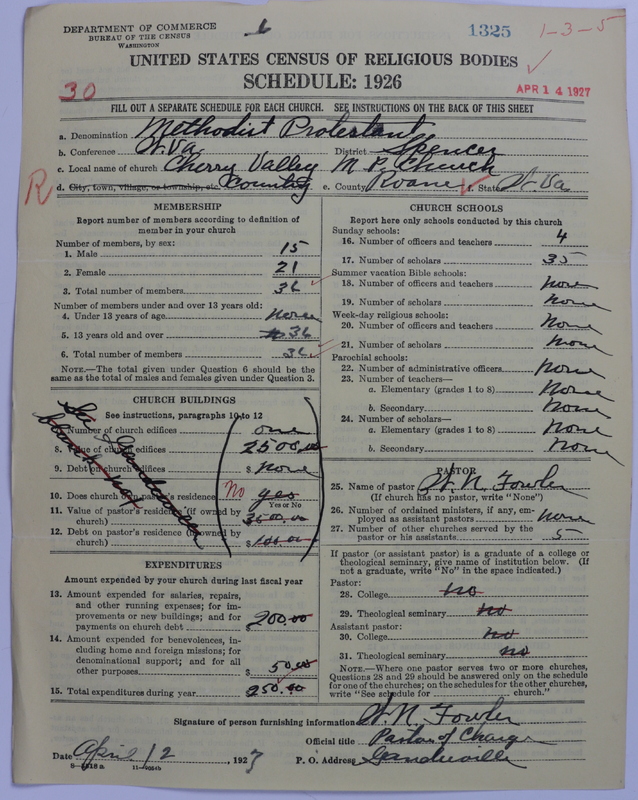 DEPARTMENT OF COMMERCE
BUREAU OF THE CENSUS
WASHINGTON
1325
1-3-5
UNITED STATES CENSUS OF RELIGIOUS BODIES
SCHEDULE: 1926
30
APR 14 1927
FILL OUT A SEPARATE SCHEDULE FOR EACH CHURCH. SEE INSTRUCTIONS ON THE BACK OF THIS SHEET
a. Denomination Methodist Protestant
b. Conference W. Va District Spencer
c. Local name of church Cherry Valley M P. Church
R
d. City, town, village, or township, etc. Country e. County Roane f. State W. Va
MEMBERSHIP
Report number of members according to definition of member in your church
Number of members, by sex:
1. Male 15
2. Female 21
3. Total number of members 36
Number of members under and over 13 years old:
4. Under 13 years of age None
5. 13 years old and over 36
6. Total number of members 36
NOTE.—The total given under Question 6 should be the same as the total of males and females given under Question 3.
CHURCH BUILDINGS
See instructions, paragraphs 10 to 12
7. Number of church edifices one
8. Value of church edifices $ 2500.00
9. Debt on church edifices $ None
10. Does church own pastor's residence? No yes
Yes or No
11. Value of pastor's residence (if owned by church) $ 3500.00
12. Debt on pastor's residence (if owned by church) $ 100.00
EXPENDITURES
Amount expended by your church during last fiscal year
13. Amount expended for salaries, repairs, and other running expenses; for improvements or new buildings; and for payments on church debt $ 200.00
14. Amount expended for benevolences, including home and foreign missions; for denominational support; and for all other purposes $ 50.00
15. Total expenditures during year 250.00
CHURCH SCHOOLS
Report here only schools conducted by this church
Sunday schools:
16. Number of officers and teachers 4
17. Number of scholars 35
Summer vacation Bible schools:
18. Number of officers and teachers None
19. Number of scholars None
Week-day religious schools:
20. Number of officers and teachers None
21. Number of scholars None
Parochial schools:
22. Number of administrative officers None
23. Number of teachers—
a. Elementary (grades 1 to 8) None
b. Secondary None
24. Number of scholars—
a. Elementary (grades 1 to 8) None
b. Secondary None
PASTOR
25. Name of pastor W. N. Fowler
(If church has no pastor, write "None")
26. Number of ordained ministers, if any, employed as assistant pastors none
27. Number of other churches served by the pastor or his assistants 5
If pastor (or assistant pastor) is a graduate of a college or theological seminary, give name of institution below. (If not a graduate, write "No" in the space indicated.)
Pastor:
28. College no
29. Theological seminary no
Assistant pastor:
30. College no
31. Theological seminary no
NOTE.—Where one pastor serves two or more churches, Questions 28 and 29 should be answered only on the schedule for one of the churches; on the schedules for the other churches, write "See schedule for church."
Signature of person furnishing information W. N. Fowler
Official title Pastor of Charge
Date April 12, 1927 P. O. Address Gandeeville